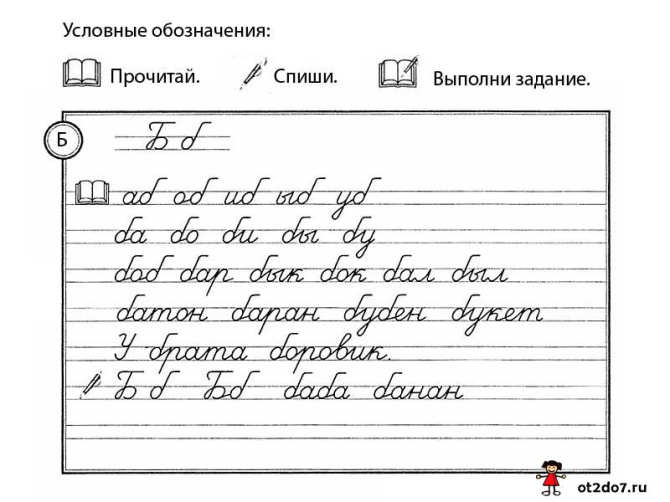 Условные обозначения:
Прочитай. Спиши. Выполни задание.
Б
Б б
аб об иб ыб уб
ба бо би бы бу
боб бар бык бок бал был
батон баран бубен букет
У брата боровик.
Б б Бб баба банан
ot2do7.ru